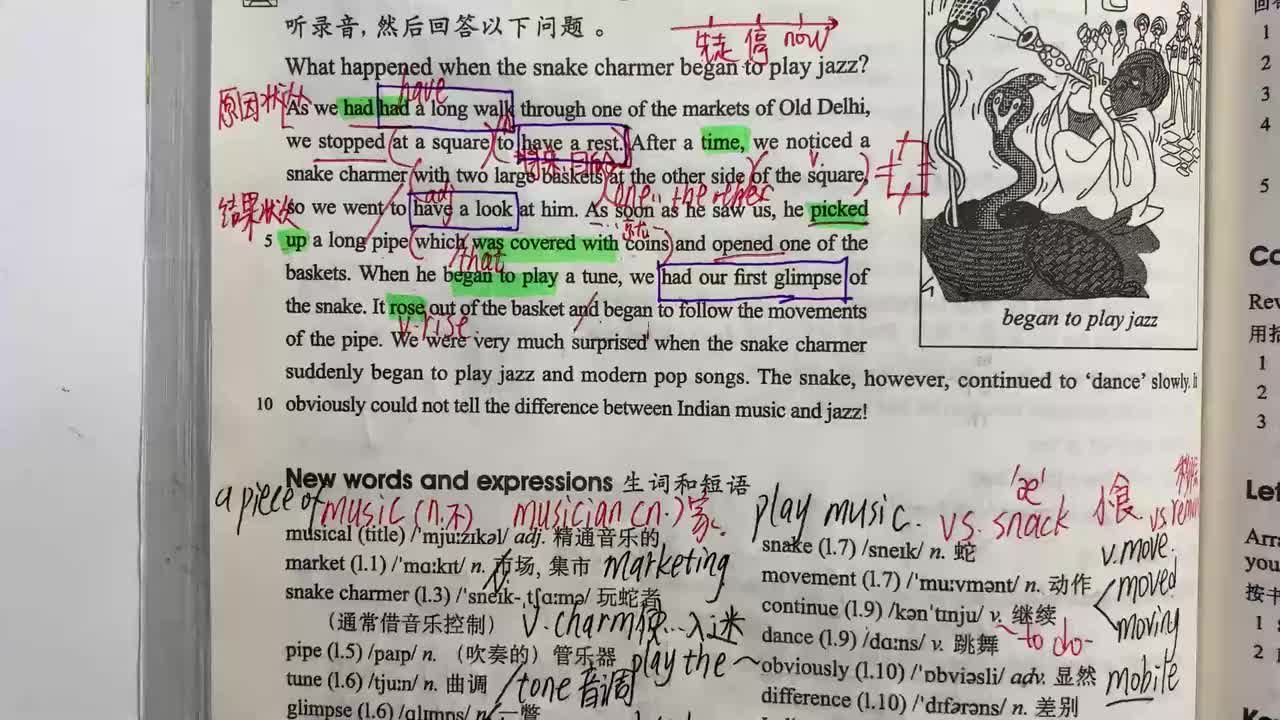 听录音，然后回答以下问题。
先走 停 now
What happened when the snake charmer began to play jazz?
have
原因状从
As we had had a long walk through one of the markets of Old Delhi,
we stopped at a square to have a rest. After a time, we noticed a
snake charmer with two large baskets at the other side of the square,
one... the other
结果状从
so we went to have a look at him. As soon as he saw us, he picked
5 up a long pipe which was covered with coins and opened one of the
that
baskets. When he began to play a tune, we had our first glimpse of
the snake. It rose out of the basket and began to follow the movements
v. rise
of the pipe. We were very much surprised when the snake charmer
suddenly began to play jazz and modern pop songs. The snake, however, continued to 'dance' slowly. It
10 obviously could not tell the difference between Indian music and jazz!
began to play jazz
New words and expressions 生词和短语
a piece of music (n.不) musician (n.) 家
play music. vs. snack /æ/ 小食
musical (title) /ˈmjuːzɪkəl/ adj. 精通音乐的
market (l.1) /ˈmɑːkɪt/ n. 市场, 集市 marketing
snake charmer (l.3) /ˈsneɪk-ˌtʃɑːmə/ 玩蛇者
（通常借音乐控制） v. charm 使...入迷
pipe (l.5) /paɪp/ n. （吹奏的）管乐器 play the ~
tune (l.6) /tjuːn/ n. 曲调 / tone 音调
glimpse (l.6) /glɪmps/ n. 一瞥
snake (l.7) /sneɪk/ n. 蛇
v. move
movement (l.7) /ˈmuːvmənt/ n. 动作 moved
continue (l.9) /kənˈtɪnju/ v. 继续 moving
~ to do
dance (l.9) /dɑːns/ v. 跳舞
obviously (l.10) /ˈɒbviəsli/ adv. 显然 mobile
difference (l.10) /ˈdɪfərəns/ n. 差别
1
2
3
4
5
Rev
用括
1
2
3
Let
Arra
you
按书
1
2